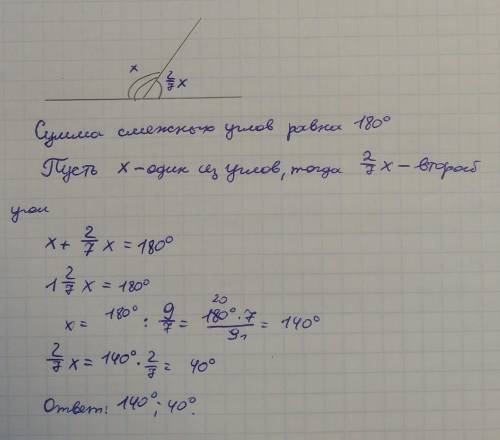 x
2/7 x
Сумма смежных углов равна 180°
Пусть x - один из углов, тогда 2/7 x - второй
угол
x + 2/7 x = 180°
1 2/7 x = 180°
x = 180° : 9/7 = 20 180° · 7 / 9 1 = 140°
2/7 x = 140° · 2/7 = 40°
Ответ: 140°; 40°.